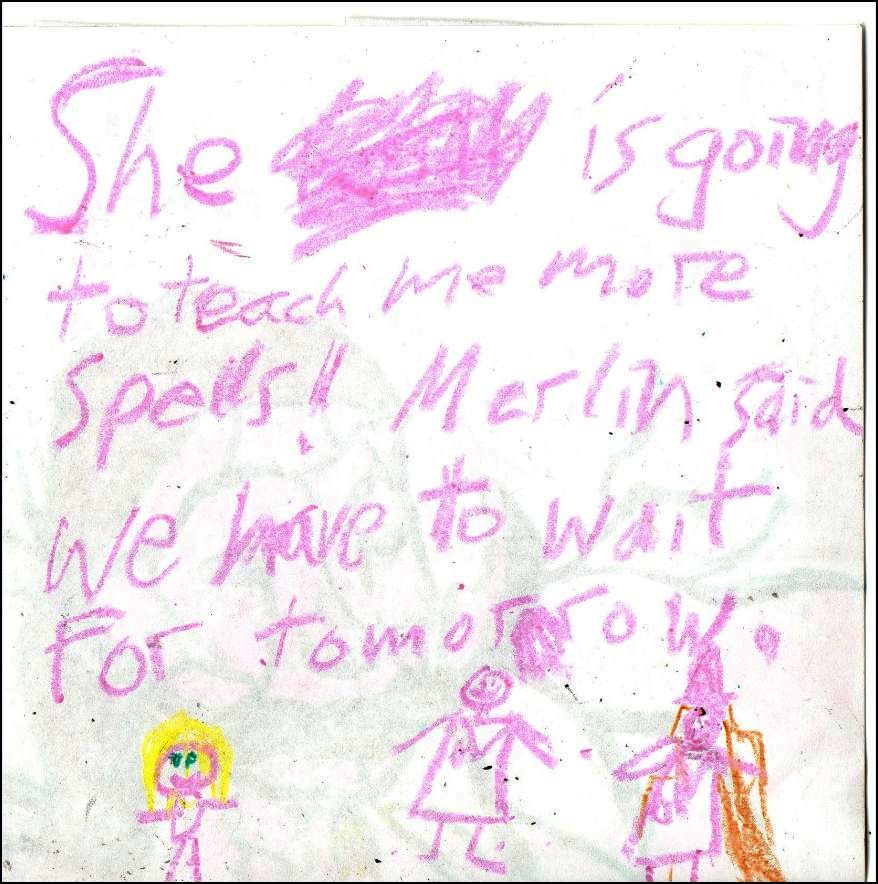 She is going
to teach me more
spells! Merlin said
we have to wait
For tomorrow.